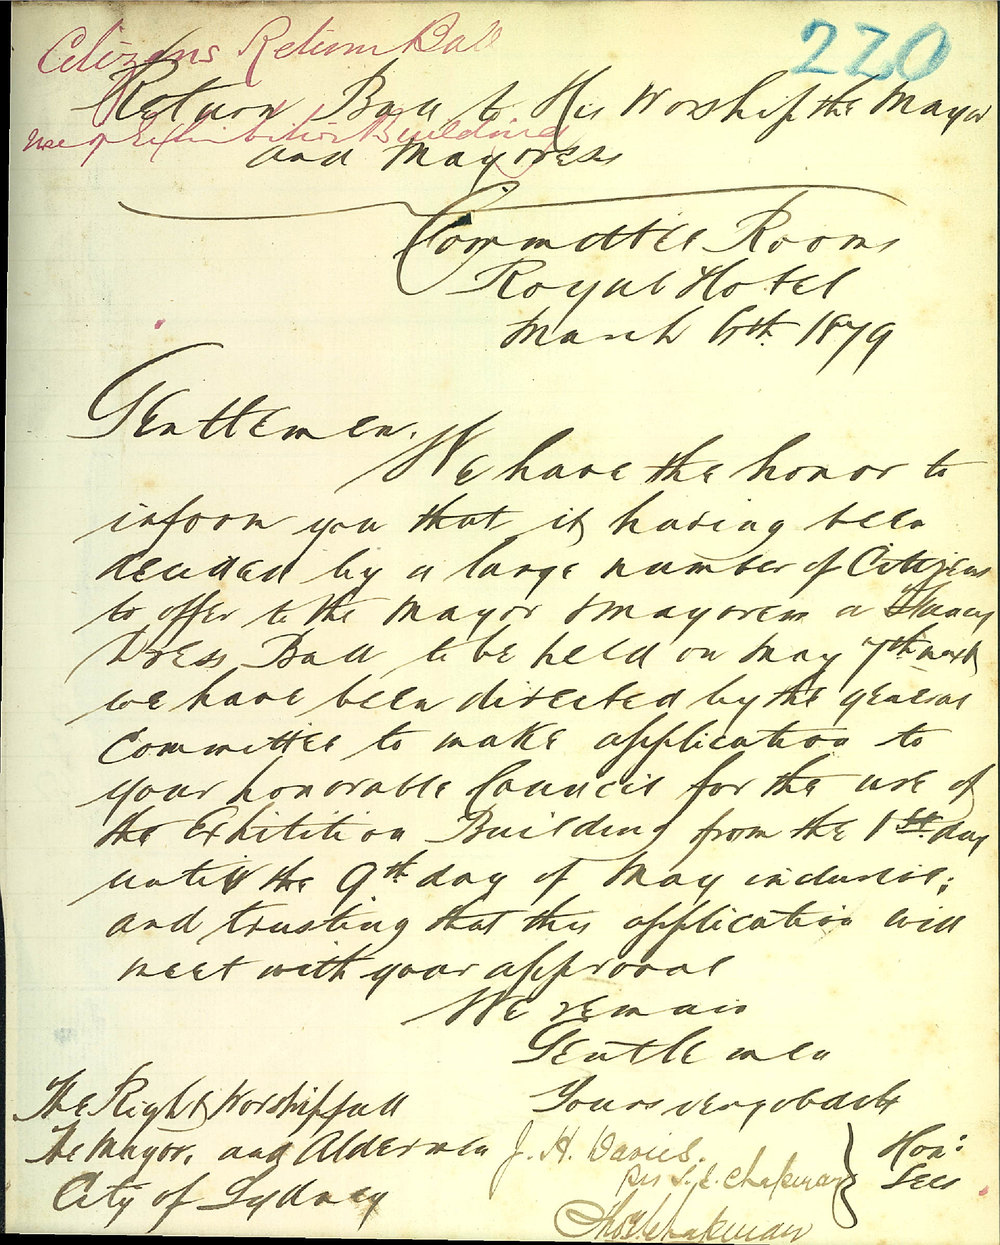 220
Citizens Return Ball
Return Ball to His Worship the Mayor
use of Exhibition Building
and Mayoress
Committee Rooms
Royal Hotel
March 6th 1879
Gentlemen.
We have the honor to
inform you that it having been
decided by a large number of Citizens
to offer to the Mayor & Mayoress a Fancy
Dress Ball to be held on May 7th next
we have been directed by the general
Committee to make application to
your honorable Council for the use of
the Exhibition Building from the 1st day
until the 9th day of May inclusive;
and trusting that this application will
meet with your approval
We remain
Gentlemen
Yours very obdtly
The Right Worshipfull
The Mayor, and Aldermen
City of Sydney
J. H. Davies.
per S. E. Chapman
Thos Chapman
Hon:
Secs